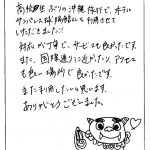 高校生ぶりの沖縄旅行で、ホテル
サンパレス球陽館にて利用させて
いただきました!!
対応が丁寧で、サービスも良かったです。
また、国際通りに近かったり、アクセス
も良い場所で良かったです。
また利用したいと思います。
ありがとうございました。